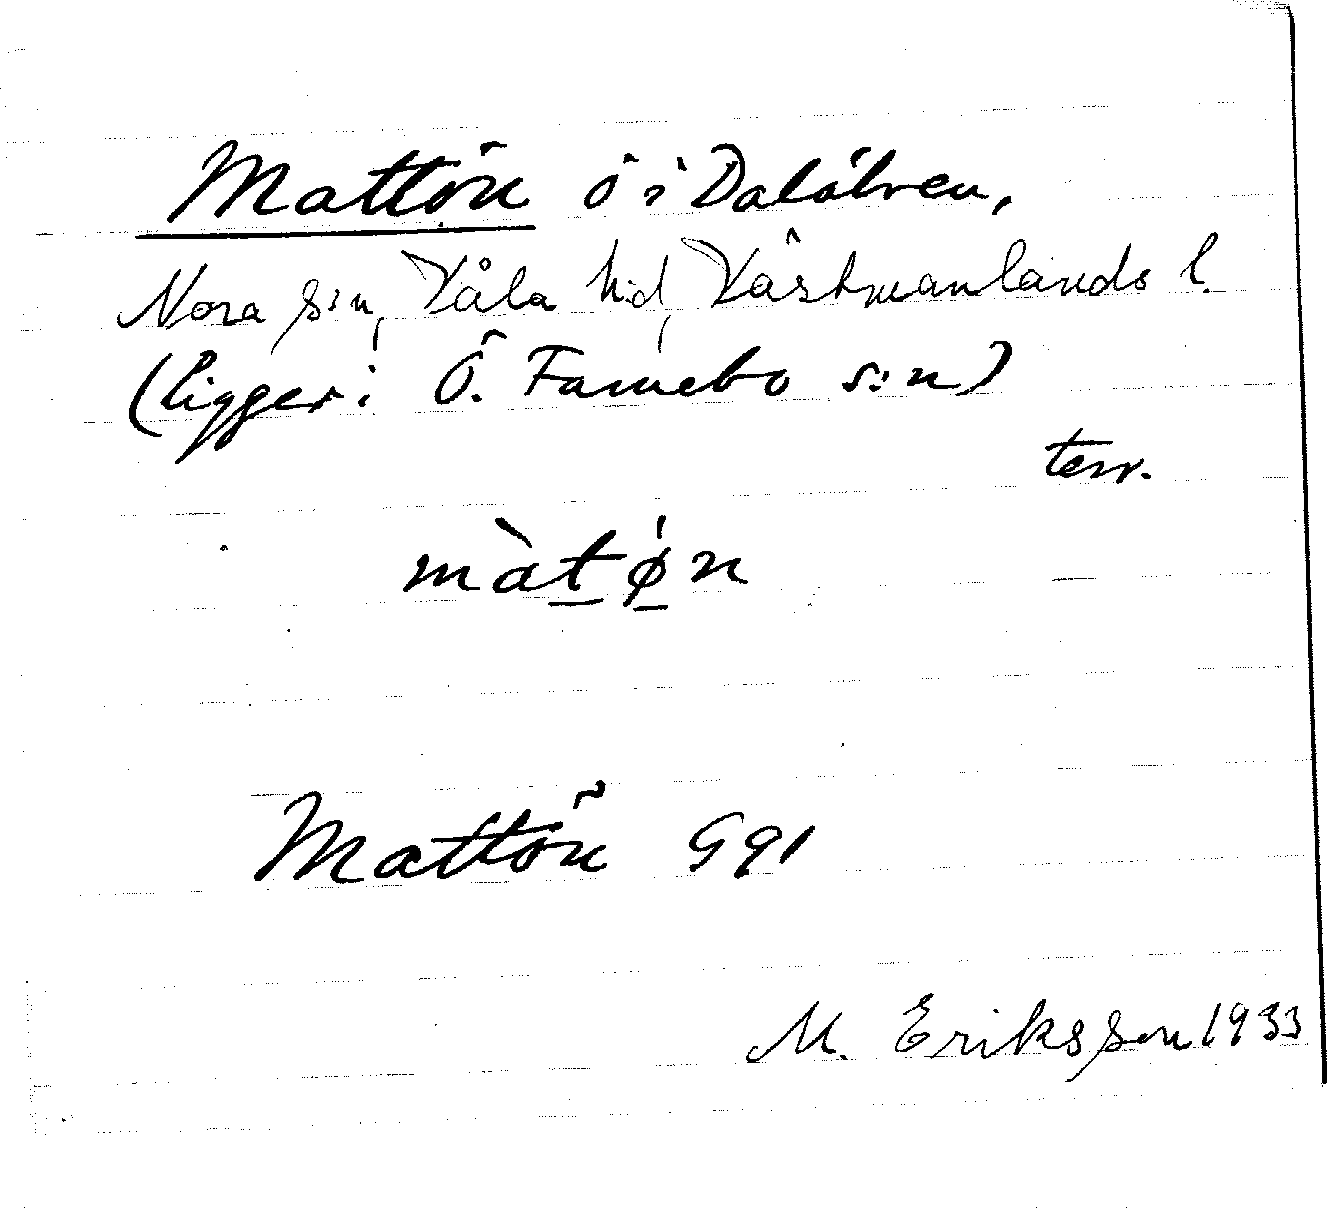 Mattön ö i Dalälven,
Nora s:n, Våla hd, Västmanlands l.
(ligger i Ö. Färnebo s:n)
terr.
màtø̍n
Mattön G91
M. Eriksson 1933